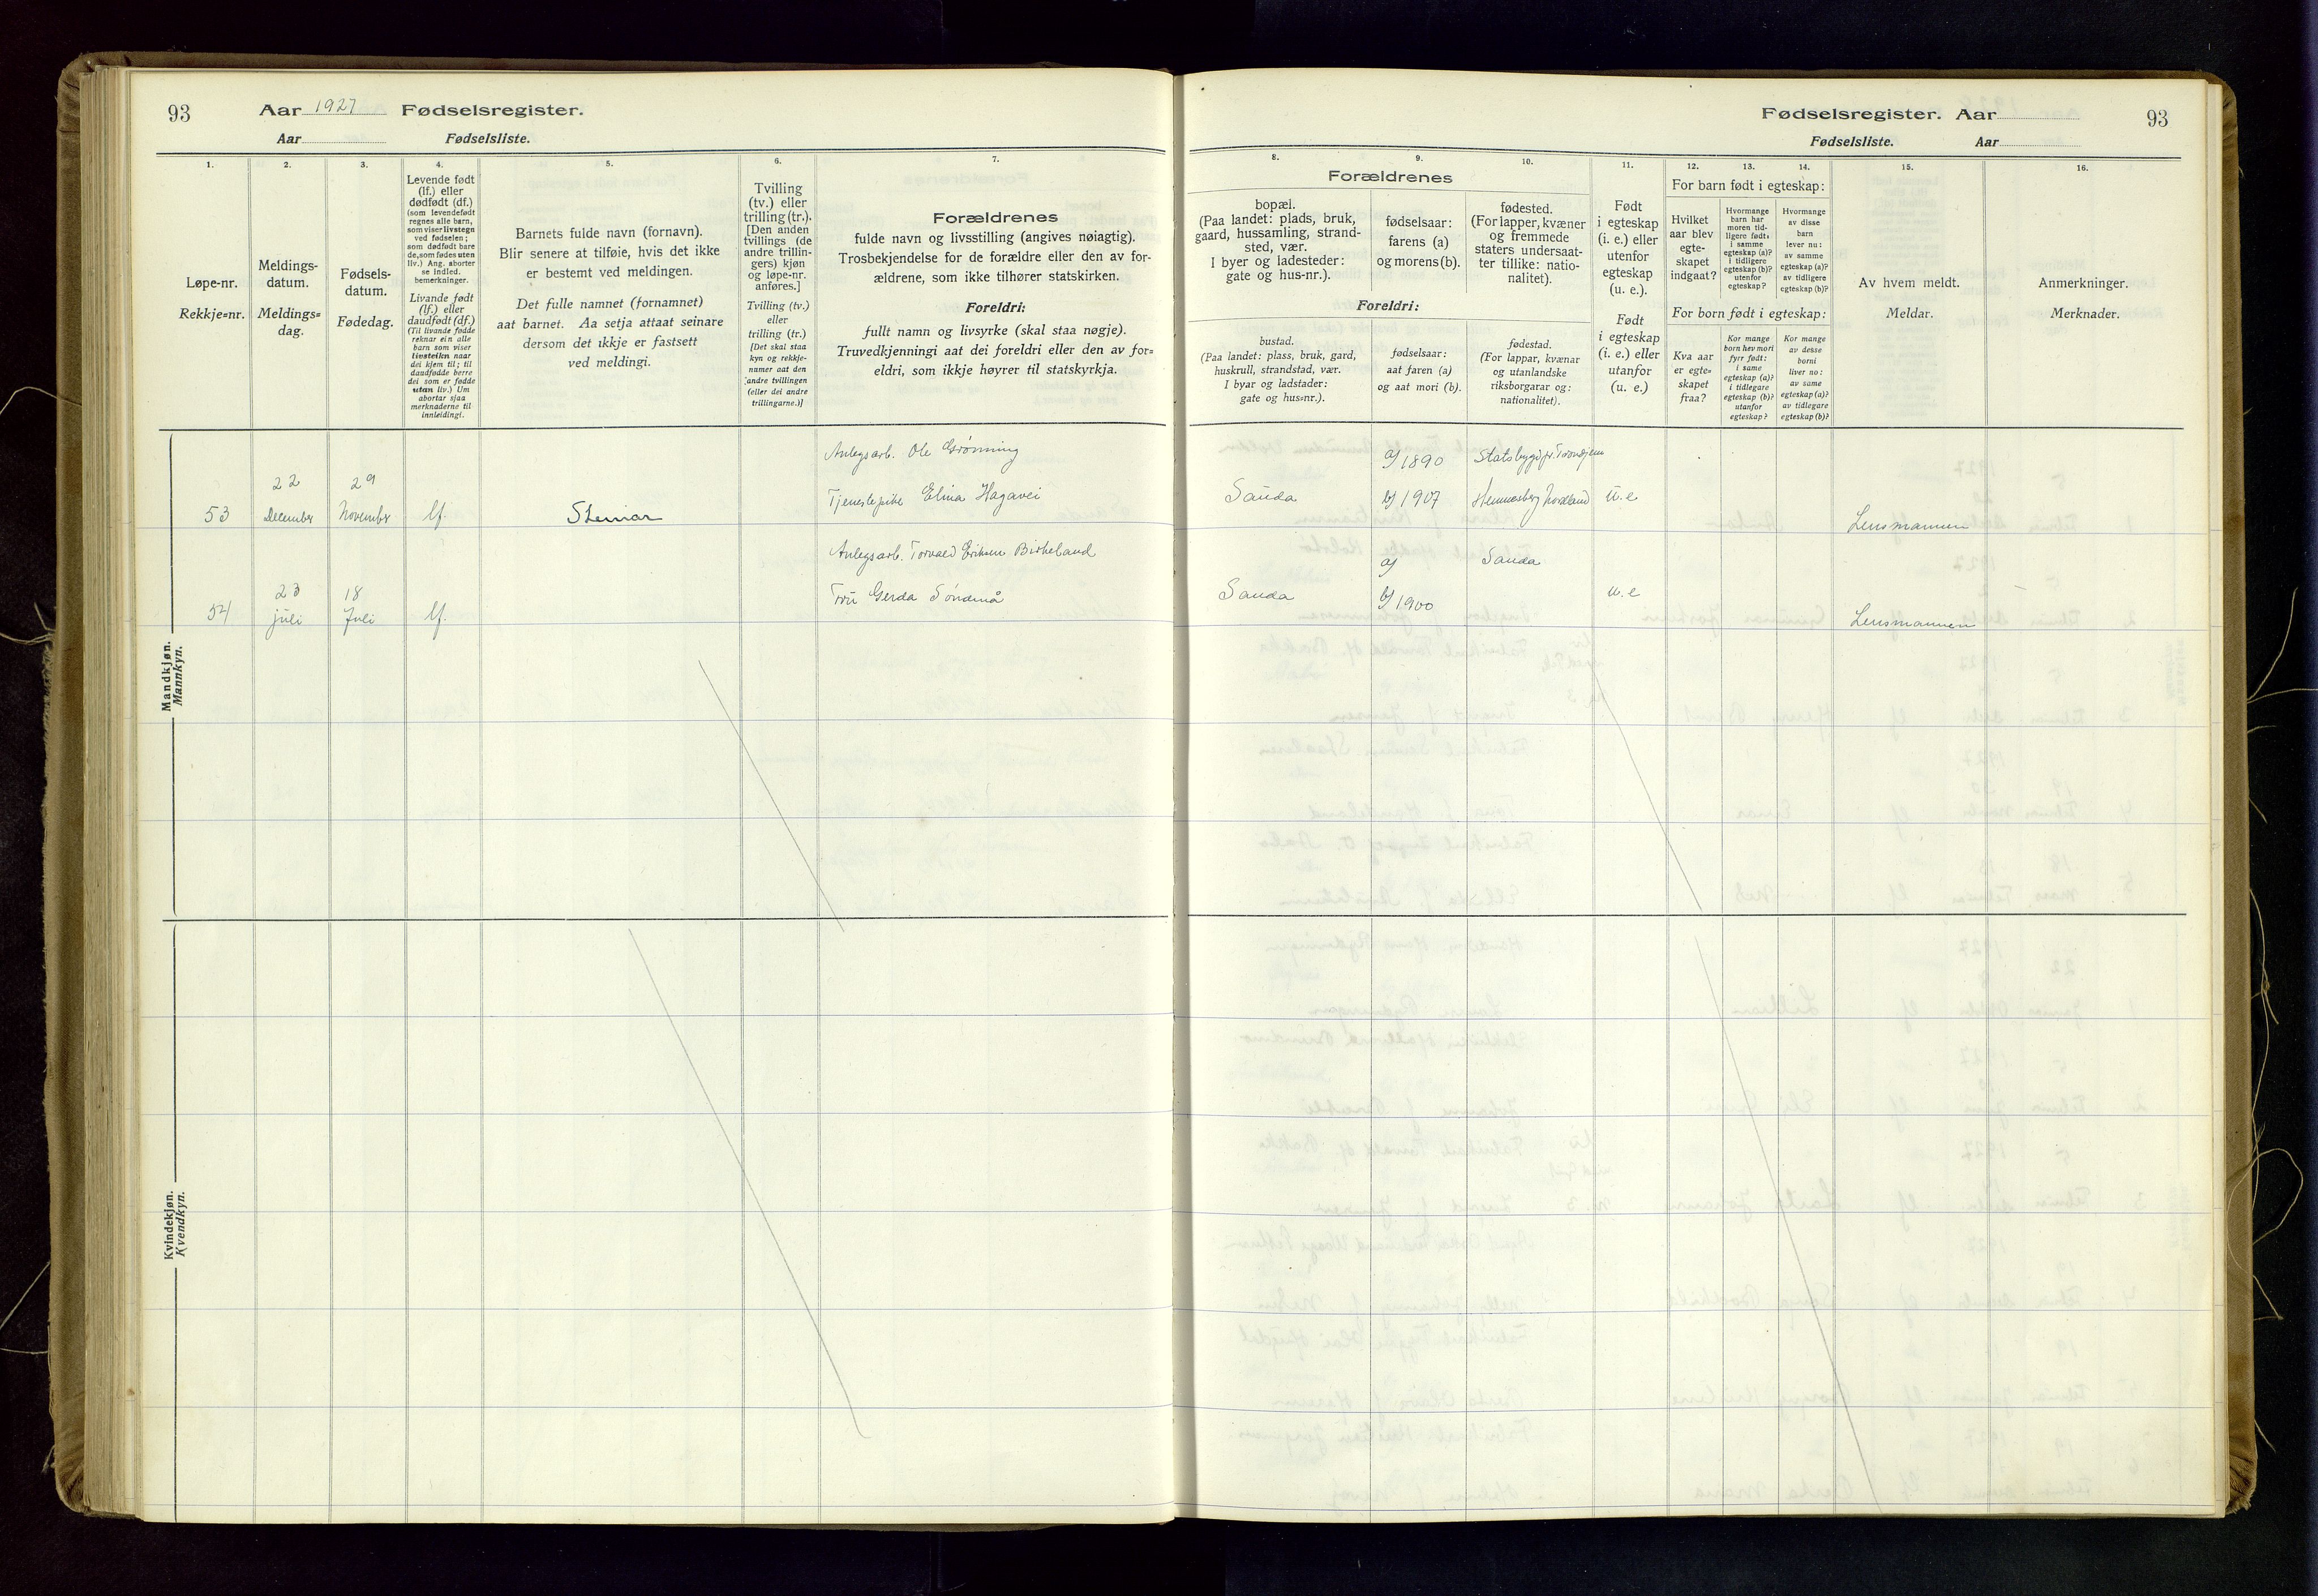 93 Aar 1927 Fødselsregister.
Aar Fødselsliste.
1.
Løpe-nr.
Rekkje=nr.
2.
Meldings-
datum.
Meldings=
dag.
3.
Fødsels-
datum.
Fødedag.
4.
Levende født
(lf.) eller
dødfødt (df.)
(som levendefødt
regnes alle barn,
som viser livstegn
ved fødselen;
som dødfødt bare
de, som fødes uten
liv.) Ang. aborter
se indled.
bemerkninger.
Livande født
(lf.) eller
daudfødt (df.)
(Til livande fødde
reknar ein alle
barn som viser
livsteikn naar
dei kjem til; til
daudfødde berre
dei som er fødde
utan liv.) Um
abortar sjaa
merknaderne til
innleidingi.
5.
Barnets fulde navn (fornavn).
Blir senere at tilføie, hvis det ikke
er bestemt ved meldingen.
Det fulle namnet (fornamnet)
aat barnet. Aa setja attaat seinare
dersom det ikkje er fastsett
ved meldingi.
6.
Tvilling
(tv.) eller
trilling (tr.).
[Den anden
tvillings (de
andre trillin-
gers) kjøn
og løpe-nr.
anføres.]
Tvilling (tv.)
eller
trilling (tr.)
[Det skal staa
kyn og rekkje-
numer aat den
andre tvillingen
(eller dei andre
trillingarne.)]
7.
Forældrenes
fulde navn og livsstilling (angives nøiagtig).
Trosbekjendelse for de forældre eller den av for-
ældrene, som ikke tilhører statskirken.
Foreldri:
fullt namn og livsyrke (skal staa nøgje).
Truvedkjenningi aat dei foreldri eller den av for=
eldri, som ikkje høyrer til statskyrkja.
Mandkjøn.
Mannkyn.
Anlegsarb. Ole Grönning
22 29
Tjenestepike Elina Hagavei
53 December November lf. Steinar
Anlegsarb. Torvald Eriksen Birkeland
23 18
Gerda Söndenå
54 juli Juli lf.
Kvindekjøn.
Kvendkyn.
Fødselsregister. Aar 93
Fødselsliste. Aar
8.
Forældrenes
bopæl.
(Paa landet: plads, bruk,
gaard, hussamling, strand-
sted, vær.
I byer og ladesteder:
gate og hus-nr.).
Foreldri:
bustad.
(Paa landet: plass, bruk, gard,
huskrull, strandstad, vær.
I byar og ladstader:
gate og hus=nr.).
9.
fødselsaar:
farens (a)
og morens (b).
fødselsaar:
aat faren (a)
og aat mori (b).
10.
fødested.
(For lapper, kvæner
og fremmede
staters undersaat-
ter tillike: natio-
nalitet).
fødestad.
(For lappar, kvænar
og utanlandske
riksborgarar og:
nationalitet).
11.
Født
i egteskap
(i. e.) eller
utenfor
egteskap
(u. e.).
Født
i egteskap
(i. e.) eller
utanfor
(u. e.)
12. 13. 14.
For barn født i egteskap:
Hvilket
aar blev
egte-
skapet
indgaat?
Hvormange
barn har
moren tid-
ligere født:
i samme
egteskap (a)?
i tidligere
egteskap (b)?
utenfor
egteskap?
Hvormange
av disse
barn
lever nu:
av samme
egteskap (a)?
av tidligere
egteskap (b)?
For born født i egteskap:
Kva aar
er egte=
skapet
fraa?
Kor mange
born hev mori
fyrr født:
i same
egteskap (a)?
i tidlegare
egteskap (b)?
utanfor
egteskap?
Kor mange
av desse
borni
liver no:
av same
egteskap (a)?
av tidlegare
egteskap (b)?
15.
Av hvem meldt.
Meldar.
16.
Anmerkninger.
Merknader.
a/ 1890 Statsbygd pr. Trondhjem
Sauda b/ 1907 Hemnesberg Nordland u.e
Lensmannen
a/ Sauda
Sauda b/ 1900 u.e
Lensmannen